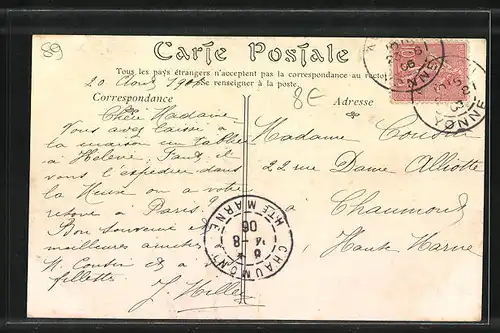 89
Carte Postale
Tous les pays étrangers n'acceptent pas la correspondance au recto
se renseigner à la poste.
20 Août 190
8E
Correspondance
Adresse
Chère Madame
Vous avez laissé à
la maison un tablier
à Hélène, faut-il
vous l'expédier dans
la Meuse ou à votre
retour à Paris ?
Bon souvenir et
meilleures amitiés
M. Cousin et à
fillettes
J. Hilles
Madame Cousin
22 rue Dame Alliotte
à Chaumont
Haute Marne
CHAUMONT
HTE MARNE
8
06
YONNE